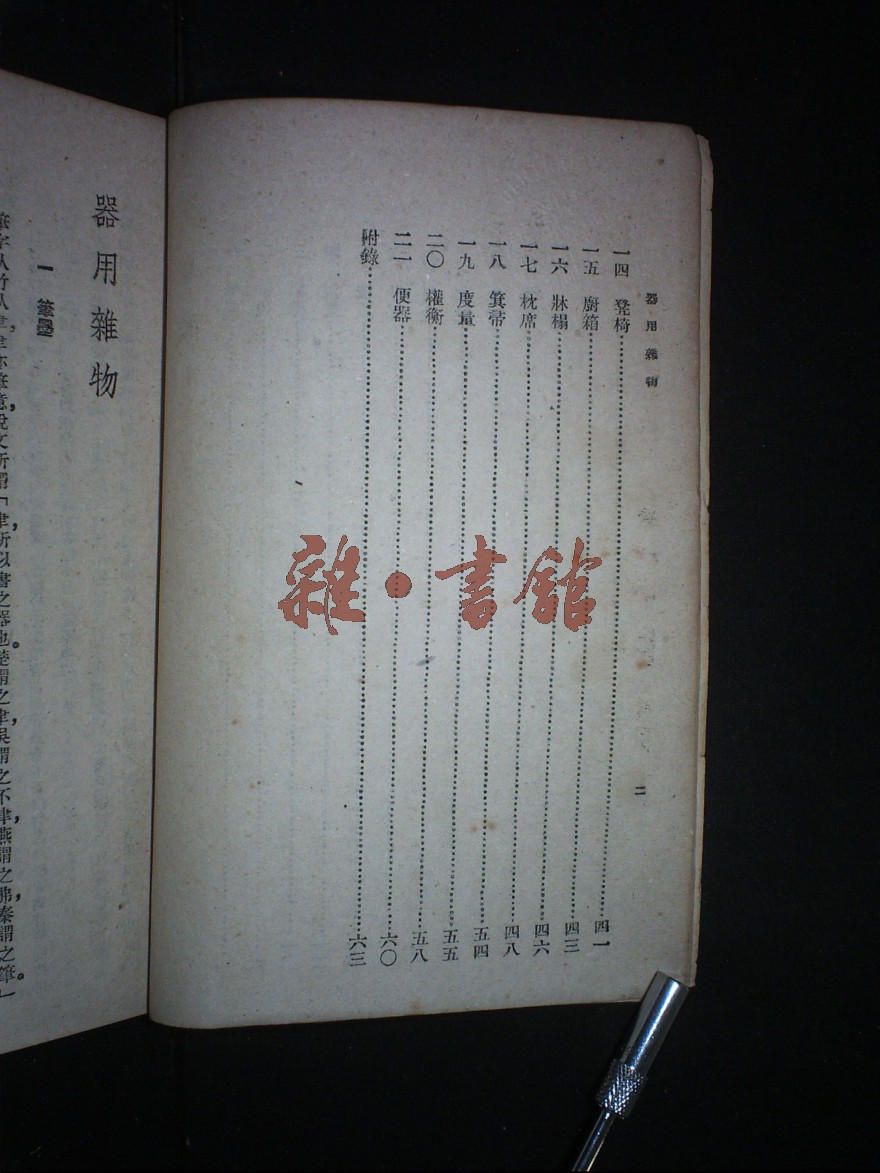 器用雜物
二
一四　凳椅……四一
一五　廚箱……四三
一六　牀榻……四六
一七　枕席……四八
一八　箕帚……五四
一九　度量……五五
二〇　權衡……五八
二一　便器……六〇
附錄……六三
器用雜物
一　筆墨
筆字从竹从聿，聿亦筆意，說文所謂「聿，所以書之器也。楚謂之聿，吳謂之不聿，燕謂之弗，秦謂之筆。」
雜·書館